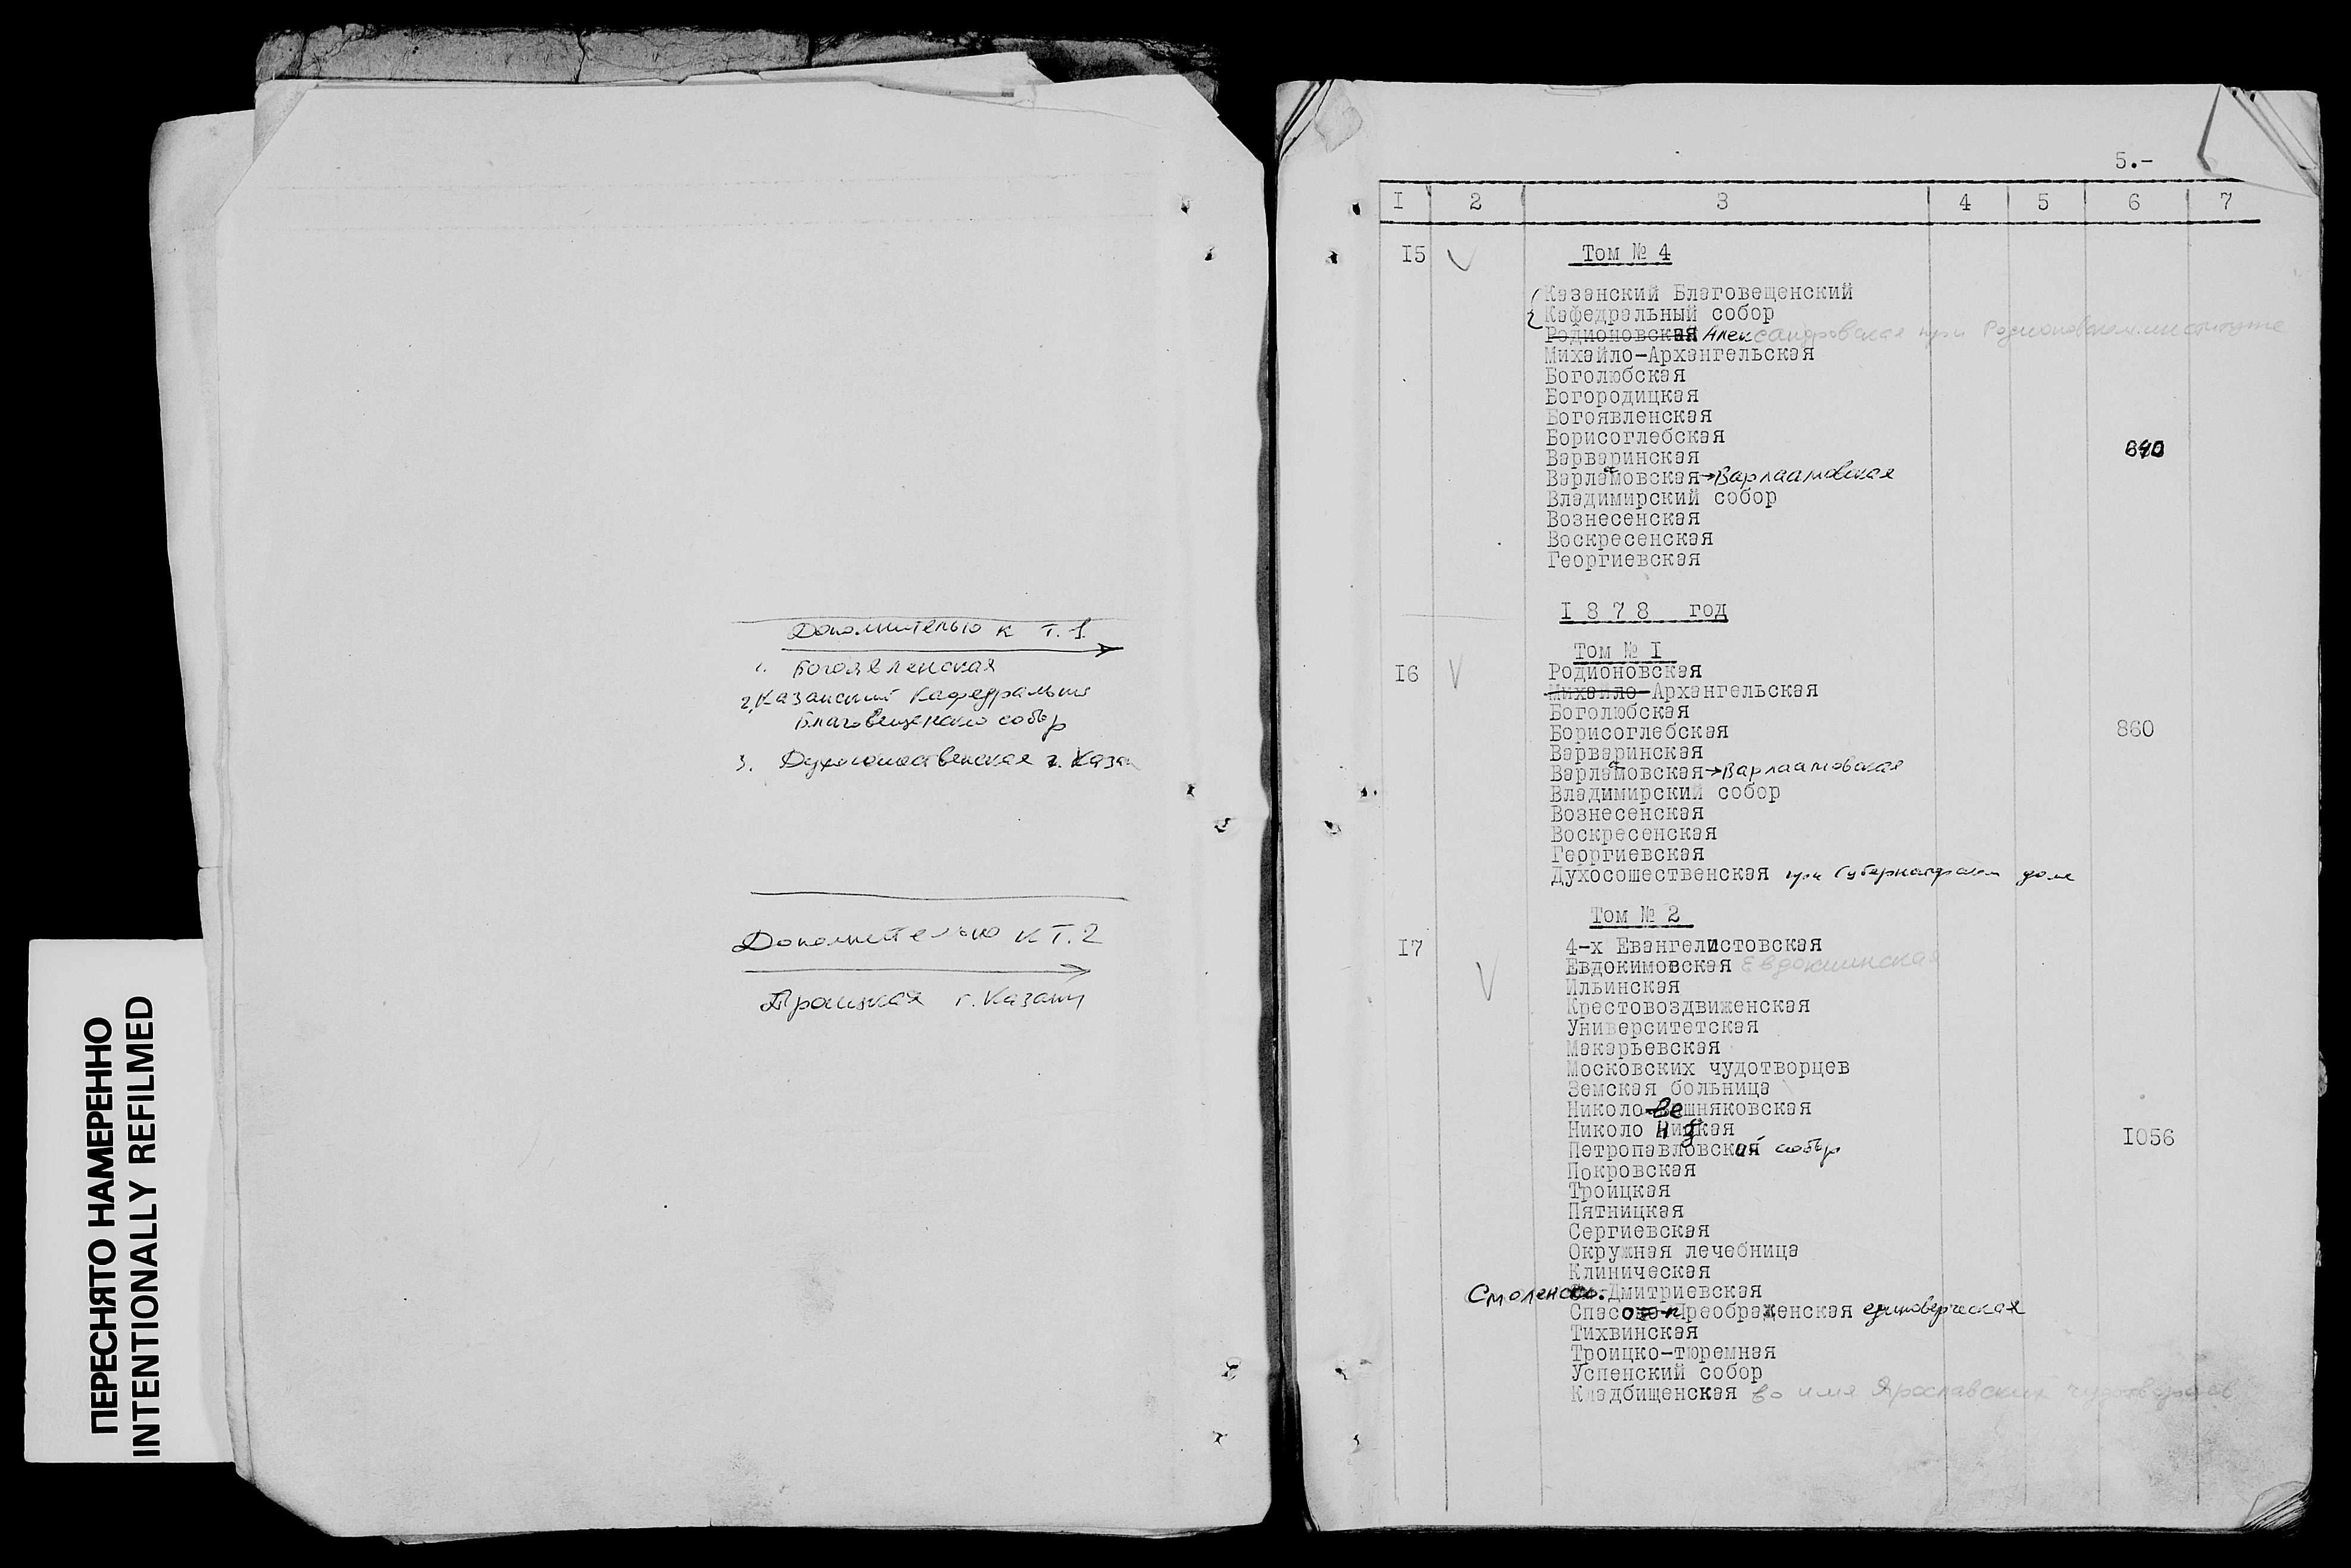 ПЕРЕСНЯТО НАМЕРЕННО
INTENTIONALLY REFILMED
Дополнительно к т.1
1. Богоявленская
2. Казанский Кафедральный
Благовещенский собор
3. Духосошественская г. Казан
Дополнительно к т.2
Троицкая г. Казани
5.-
I 2 3 4 5 6 7
15 V Том № 4
Казанский Благовещенский
Кафедральный собор
Родионовская Александровская при Родионовском институте
Михайло-Архангельская
Боголюбская
Богородицкая
Богоявленская
Борисоглебская
840
Варваринская
Варламовская→Варлаамовская
Владимирский собор
Вознесенская
Воскресенская
Георгиевская
I 8 7 8 год
Том № I
16 V Родионовская
Михайло-Архангельская
Боголюбская
Борисоглебская 860
Варваринская
Варламовская→Варлаамовская
Владимирский собор
Вознесенская
Воскресенская
Георгиевская
Духосошественская при Губернаторском доме
Том № 2
17 V 4-х Евангелистовская
Евдокимовская Евдокиинская
Ильинская
Крестовоздвиженская
Университетская
Макарьевская
Московских чудотворцев
Земская больница
Николо-Вешняковская
Николо Низкая
Петропавловский собор I056
Покровская
Троицкая
Пятницкая
Сергиевская
Окружная лечебница
Клиническая
Смоленско-Дмитриевская
Спасо-Преображенская единоверческая
Тихвинская
Троицко-тюремная
Успенский собор
Кладбищенская во имя Ярославских чудотворцев